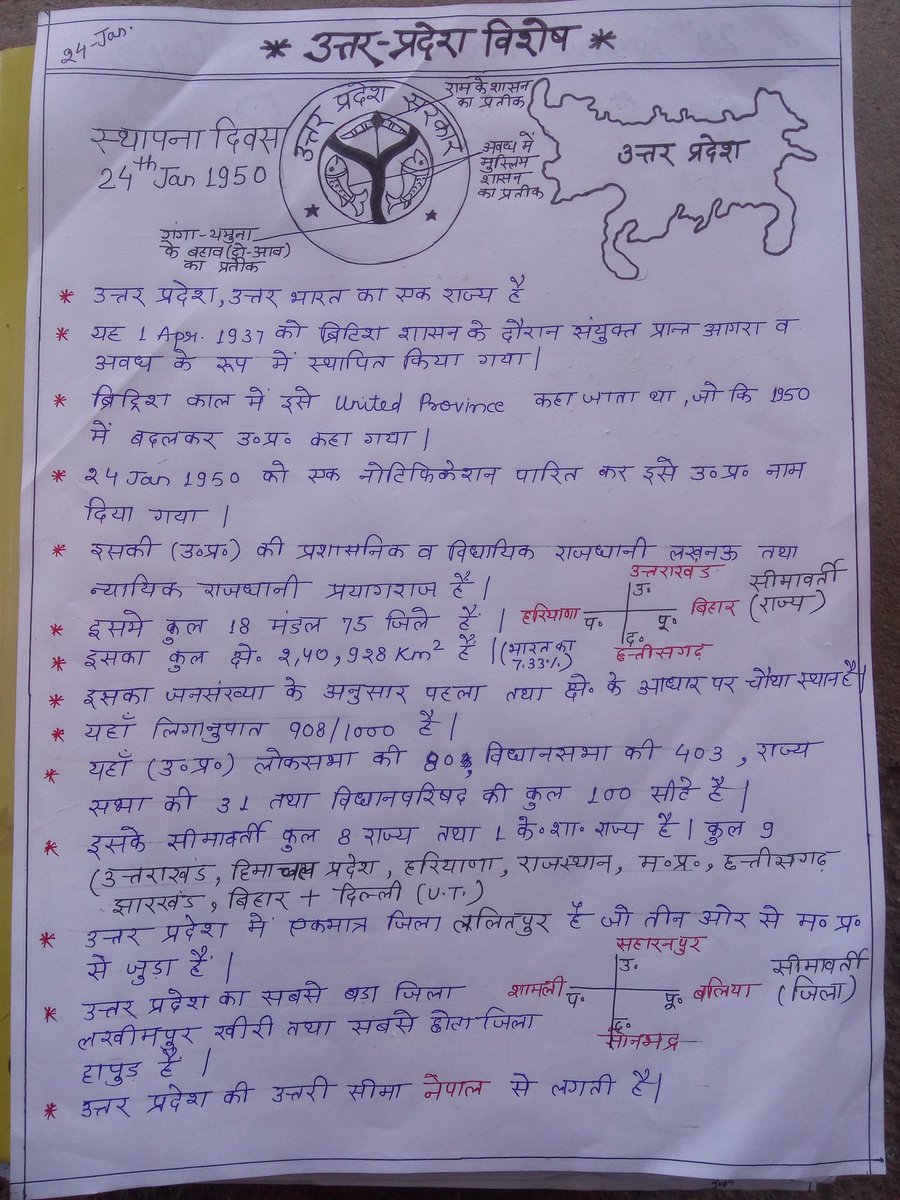 24-Jan.
* उत्तर-प्रदेश विशेष *
स्थापना दिवस
24th Jan 1950
उत्तर प्रदेश सरकार
राम के शासन
का प्रतीक
अवध में
मुस्लिम
शासन
का प्रतीक
गंगा-यमुना
के बहाव (दो-आब)
का प्रतीक
उत्तर प्रदेश
* उत्तर प्रदेश, उत्तर भारत का एक राज्य है
* यह 1 Apr. 1937 को ब्रिटिश शासन के दौरान संयुक्त प्रान्त आगरा व
अवध के रूप में स्थापित किया गया।
* ब्रिट्रिश काल में इसे United Province कहा जाता था, जो कि 1950
में बदलकर उ०प्र० कहा गया।
* 24 Jan 1950 को एक नोटिफिकेशन पारित कर इसे उ०प्र० नाम
दिया गया ।
* इसकी (उ०प्र०) की प्रशासनिक व विधायिक राजधानी लखनऊ तथा
न्यायिक राजधानी प्रयागराज है |
उत्तराखंड
उ.
हरियाणा प. पू. बिहार
द.
छत्तीसगढ़
सीमावर्ती
(राज्य)
* इसमे कुल 18 मंडल 75 जिले हैं |
* इसका कुल क्षे. 2,40,928 Km2 है | (भारत का
7.33%)
* इसका जनसंख्या के अनुसार पहला तथा क्षे० के आधार पर चौथा स्थान है|
* यहाँ लिगानुपात 908/1000 है |
* यहाँ (उ०प्र०) लोकसभा की 80, विधानसभा की 403, राज्य
सभा की 31 तथा विधानपरिषद की कुल 100 सीटे है |
* इसके सीमावर्ती कुल 8 राज्य तथा 1 के०शा० राज्य है | कुल 9
(उत्तराखंड, हिमाचल प्रदेश, हरियाणा, राजस्थान, म०प्र०, छत्तीसगढ़
झारखंड, बिहार + दिल्ली (U.T.)
* उत्तर प्रदेश में एकमात्र जिला ललितपुर है जो तीन ओर से म० प्र०
से जुड़ा है |
सहारनपुर
उ.
शामली प. पू. बलिया
द.
सोनभद्र
सीमावर्ती
(जिला)
* उत्तर प्रदेश का सबसे बडा जिला
लखीमपुर खीरी तथा सबसे छोटा जिला
हापुड़ है |
* उत्तर प्रदेश की उत्तरी सीमा नेपाल से लगती है|